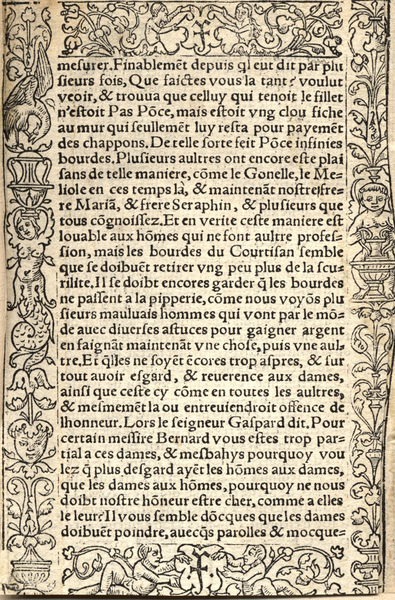 mesurer.Finablemẽt depuis ql eut dit par plu
sieurs fois, Que faictes vous la tant? voulut
veoir, & trouua que celluy qui tenoit le fillet
n'estoit Pas Põce, mais estoit vng clou fiche
au mur qui seullement luy resta pour payemẽt
des chappons. De telle sorte feit Põce infinies
bourdes. Plusieurs aultres ont encore este plai
sans de telle maniere, cõme le Gonelle, le Me-
liole en ces temps là, & maintenãt nostre fre-
re Mariã, & frere Seraphin, & plusieurs que
tous cõgnoissez. Et en verite ceste maniere est
louable aux hõmes qui ne font aultre profes-
sion, mais les bourdes du Courtisan semble
que se doibuẽt retirer vng peu plus de la scu-
rilite. Il se doibt encores garder q̃ les bourdes
ne passent a la pipperie, cõme nous voyõs plu
sieurs mauluais hommes qui vont par le mõ-
de auec diuerses astuces pour gaigner argent
en faignãt maintenãt vne chose, puis vne aul-
tre. Et q̃lles ne soyẽt ẽcores trop aspres, & sur
tout auoir esgard, & reuerence aux dames,
ainsi que ceste cy cõme en toutes les aultres,
& mesmemẽt la ou entreuiendroit offence de
lhonneur. Lors le seigneur Gaspard dit. Pour
certain messire Bernard vous estes trop par-
tial a ces dames, & mesbahys pourquoy vou
lez q̃ plus desgard ayẽt les hõmes aux dames,
que les dames aux hõmes, pourquoy ne nous
doibt nostre hõneur estre cher, comme a elles
le leur? Il vous semble dõcques que les dames
doibuẽt poindre, auecq̃s parolles & mocque-